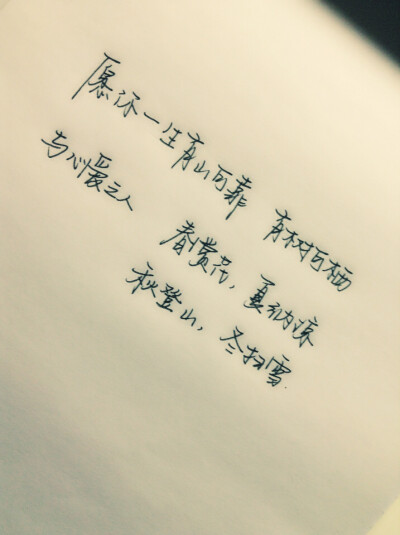 愿你一生有山可靠 有树可栖
与心爱之人
春赏花，夏纳凉
秋登山，冬扫雪.